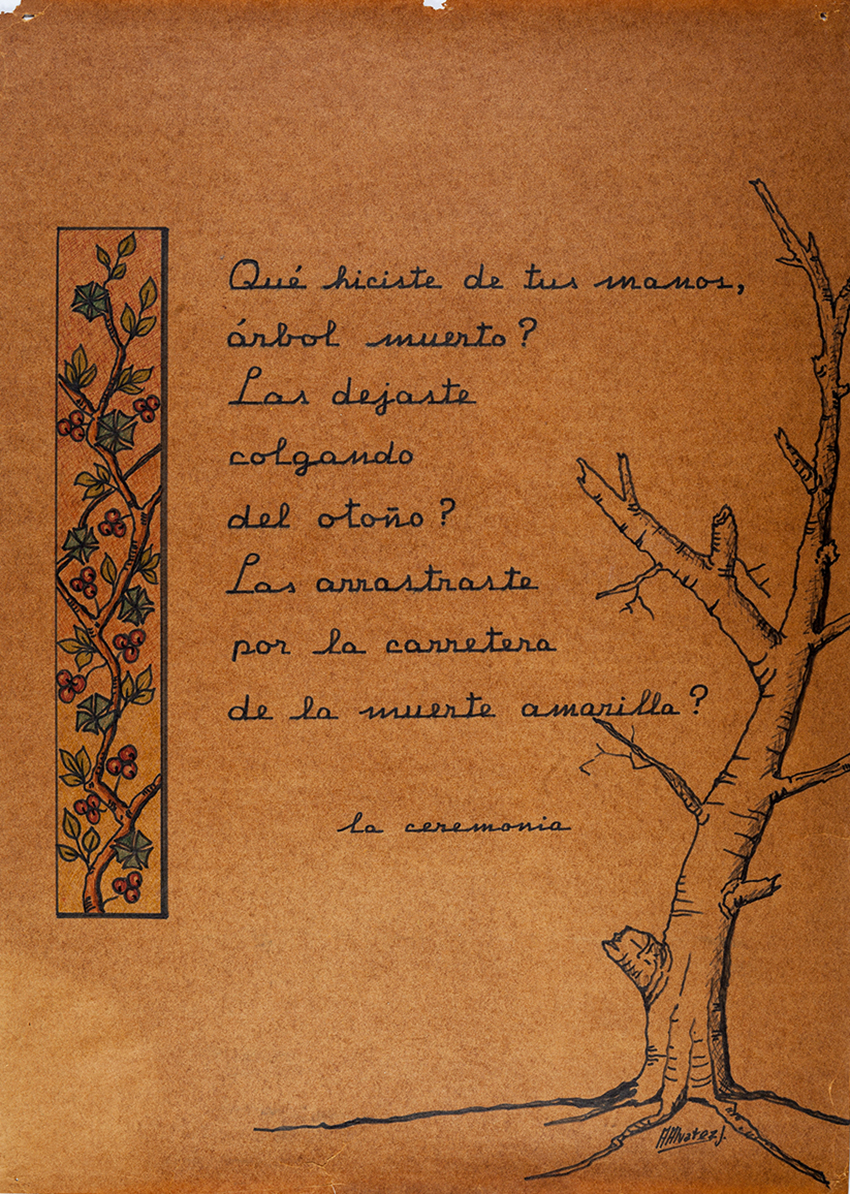 Qué hiciste de tus manos,
árbol muerto?
Las dejaste
colgando
del otoño?
Las arrastraste
por la carretera
de la muerte amarilla?
la ceremonia
AAlvarez J.